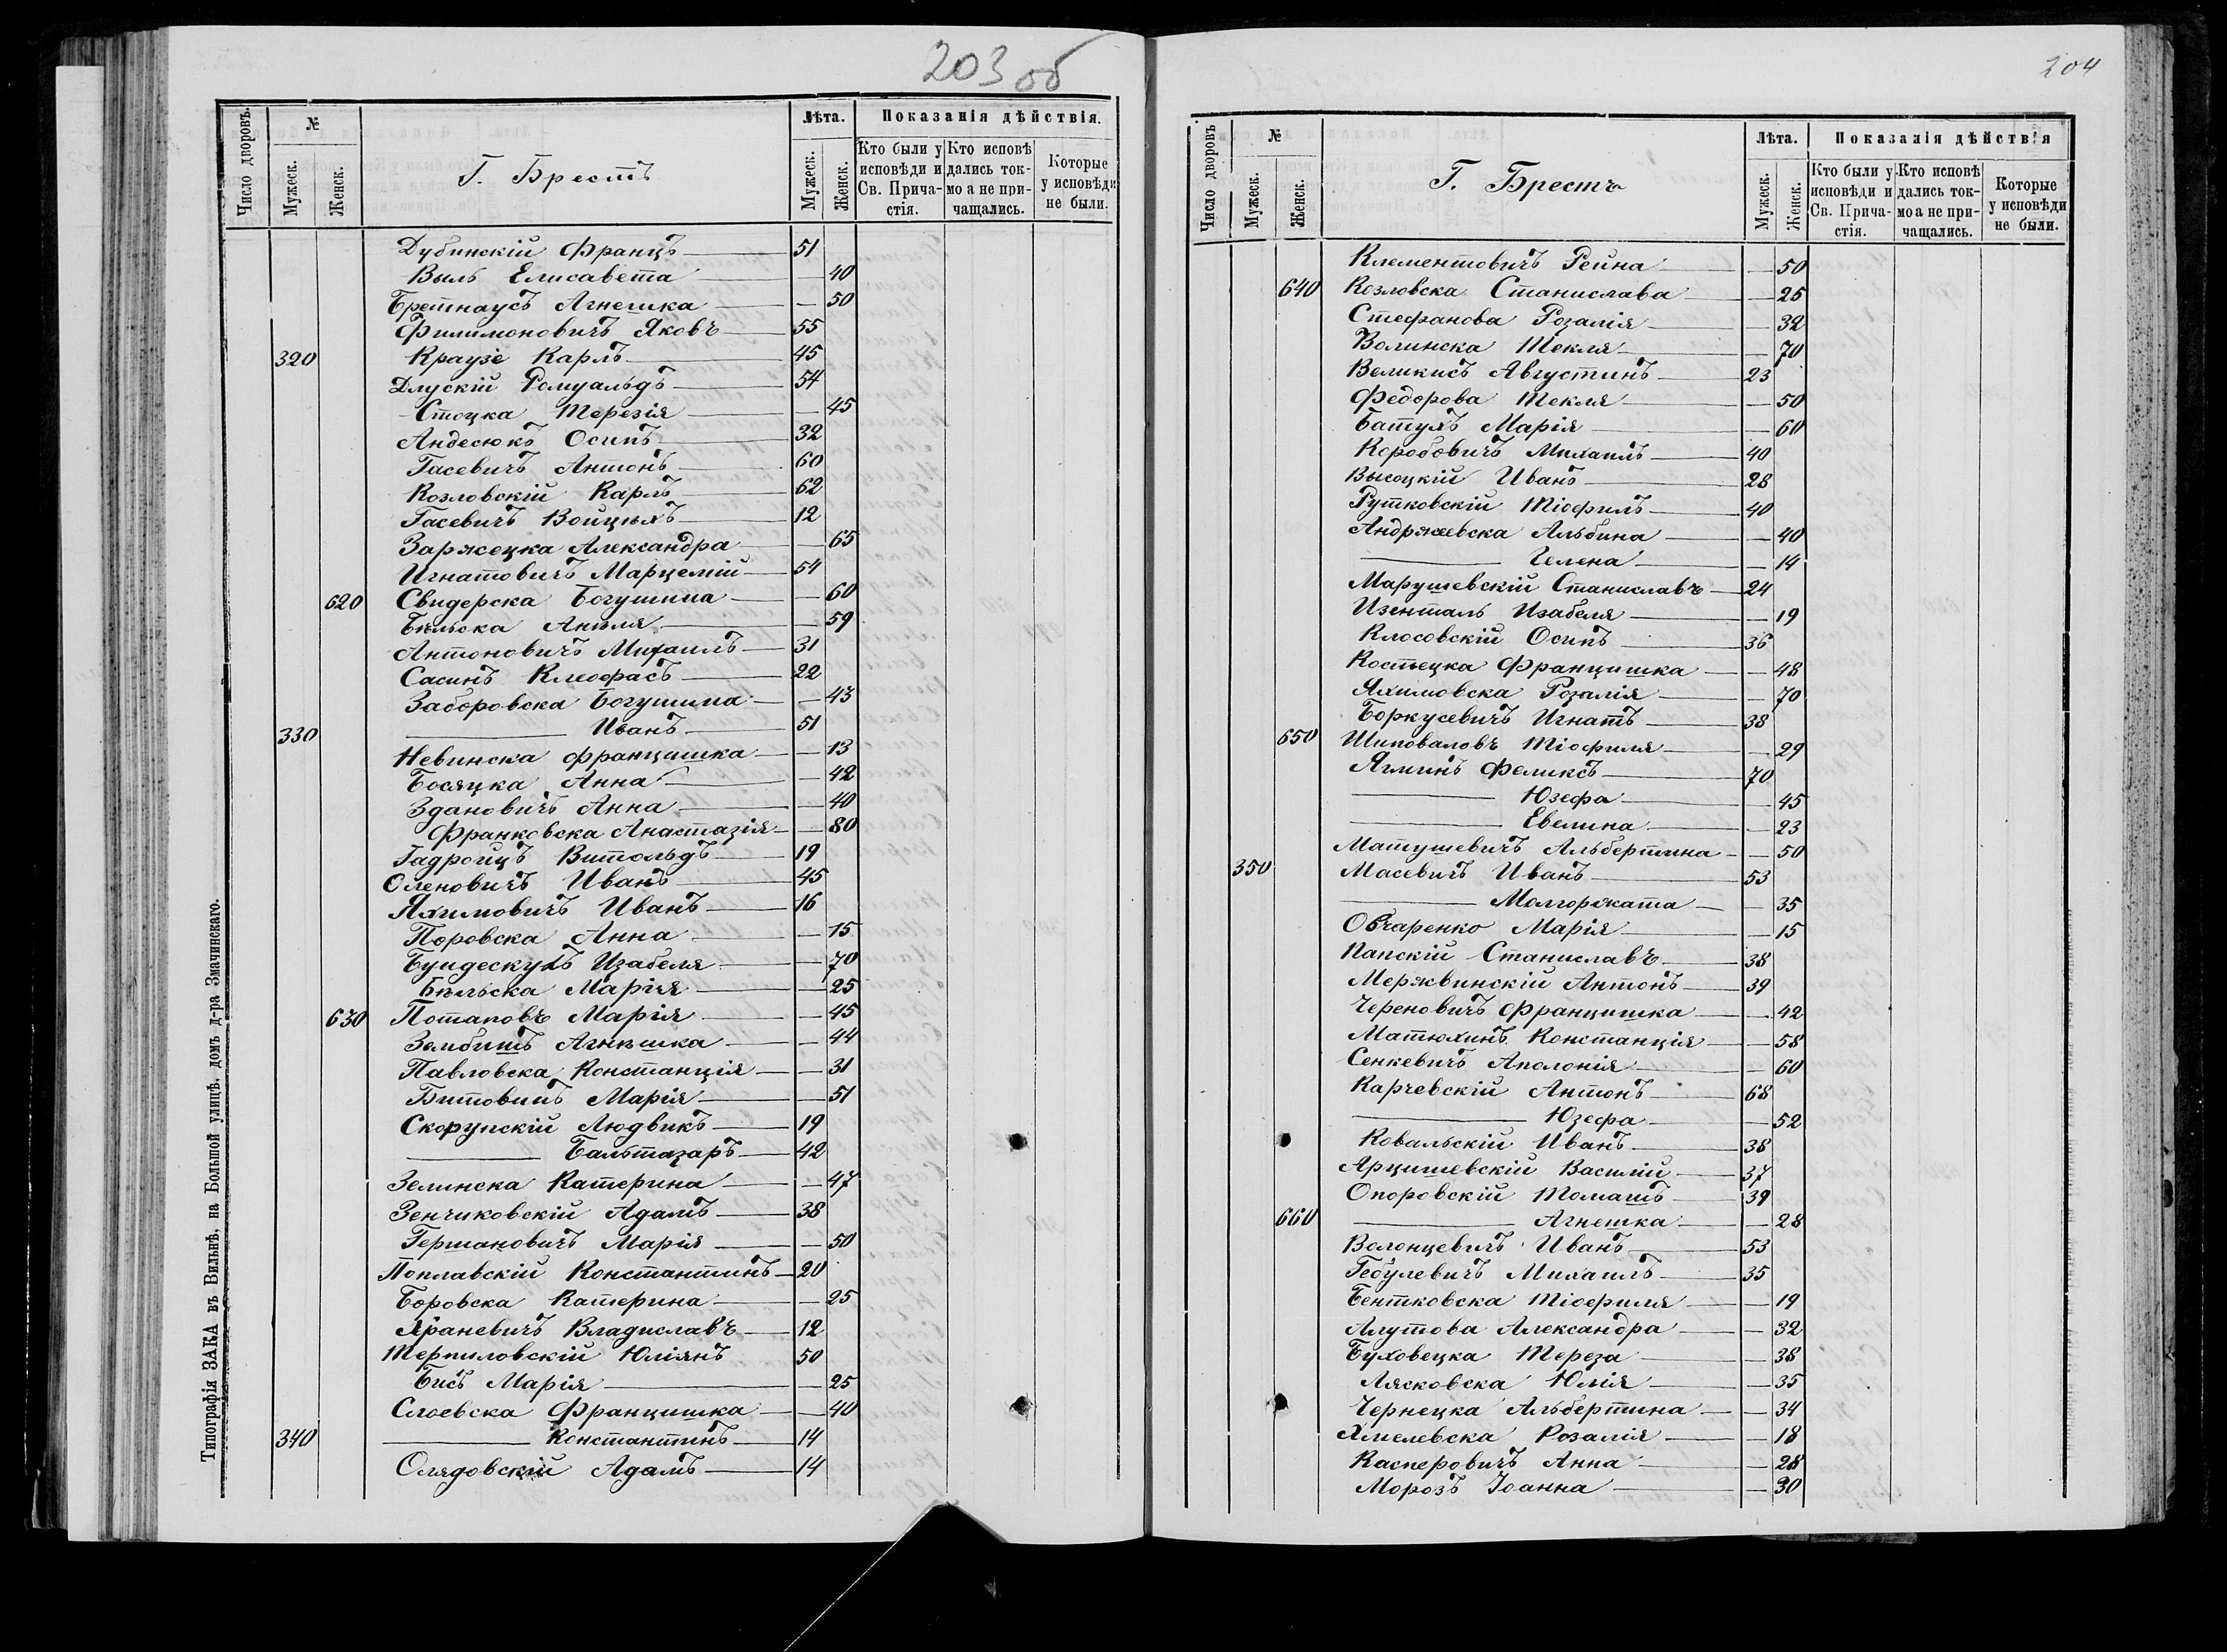 203 об
Число дворовъ.
№
Мужеск.
Женск.
Г. Брестъ
Лѣта.
Мужеск.
Женск.
Показанія дѣйствія.
Кто были у исповѣди и Св. Причастія.
Кто исповѣдались токмо а не причащались.
Которые у исповѣди не были.
Дубинскій Францъ 51
Выль Елисавета 40
Бретнаусъ Агнешка — 50
Филимоновичъ Яковъ 55
320 Краузе Карлъ 45
Длускій Ромуальдъ 54
Стоцка Терезія — 45
Андесюкъ Осипъ 32
Гасевичъ Антонъ 60
Козловскій Карлъ 62
Гасевичъ Войцѣхъ 12
Заржецка Александра — 65
Игнатовичъ Марцелій 54
620 Свидерска Богушила — 60
Бѣльска Анѣля — 59
Антоновичъ Михаилъ 31
Сасинъ Клеофасъ 22
Заборовска Богушила — 43
330 —— Иванъ 51
Невинска Францишка — 13
Босяцка Анна — 42
Здановичъ Анна — 40
Франковска Анастазія — 80
Гадройцъ Витольдъ 19
Оленовичъ Иванъ 45
Яхимовичъ Иванъ 16
Поровска Анна — 15
Бундескухъ Изабеля — 70
Бѣльска Марія — 25
630 Потаповъ Марія — 45
Зембишъ Агнѣшка — 44
Павловска Констанція — 31
Битовинъ Марія — 51
Скорупскій Людвикъ 19
—— Бальтазаръ 42
Зелинска Катерина — 47
Зенчиковскій Адамъ 38
Германовичъ Марія — 50
Поплавскій Константинъ 20
Боровска Катерина — 25
Яраневичъ Владиславъ 12
Терпиловскій Юліянъ 50
Бисъ Марія — 25
Слоевска Францишка — 40
340 —— Константинъ 14
Олядовскій Адамъ 14
Типографія ЗАКА въ Вильнѣ, на Большой улицѣ, домъ д-ра Змачинскаго.
204
Число дворовъ
№
Мужеск.
Женск.
Г. Брестъ
Лѣта.
Мужеск.
Женск.
Показалія дѣйствія
Кто были у исповѣди и Св. Причастія.
Кто исповѣдались токмо а не причащались.
Которые у исповѣди не были.
Клементовичъ Рейна — 50
640 Козловска Станислава — 25
Стефанова Розалія — 32
Волинска Текля — 70
Великисъ Августинъ 23
Федорова Текля — 50
Батухъ Марія — 60
Коробовичъ Михаилъ 40
Высоцкій Иванъ 28
Рутковскій Тіофилъ 40
Андржеевска Альбина — 40
—— Гелена — 14
Марушевскій Станиславъ 24
Изенталь Изабеля — 19
Клосовскій Осипъ 36
Костецка Францишка — 48
Яхимовска Розалія — 70
Боркусевичъ Игнатъ 38
650 Шиповаловъ Тіофиля — 29
Ягминъ Феликсъ 70
—— Юзефа — 45
—— Евелина — 23
Матушевичъ Альбертина — 50
350 Масевичъ Иванъ 53
—— Малгоржата — 35
Овчаренко Марія — 15
Папскій Станиславъ 38
Мержвинскій Антонъ 39
Череновичъ Францишка — 42
Матюхинъ Констанція — 58
Сенкевичъ Аполонія — 60
Карчевскій Антонъ 68
—— Юзефа — 52
Ковальскій Иванъ 38
Арцишевскій Василій 37
Опоровскій Томашъ 39
660 —— Агнешка — 28
Волонцевичъ Иванъ 53
Гебулевичъ Михаилъ 35
Бентковска Тіофиля — 19
Алутова Александра — 32
Буховецка Тереза — 38
Лясковска Юлія — 35
Чернецка Альбертина — 34
Хмелевска Розалія — 18
Касперовичъ Анна — 28
Морозъ Іоанна — 30